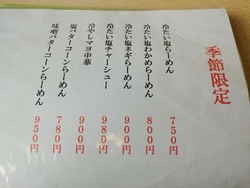 季節限定
冷たい塩らーめん 750円
冷たい塩わかめらーめん 800円
冷たい塩ネギらーめん 900円
冷たい塩チャーシュー 980円
冷やしマヨ中華 900円
塩バターコーンらーめん 780円
味噌バターコーンらーめん 950円